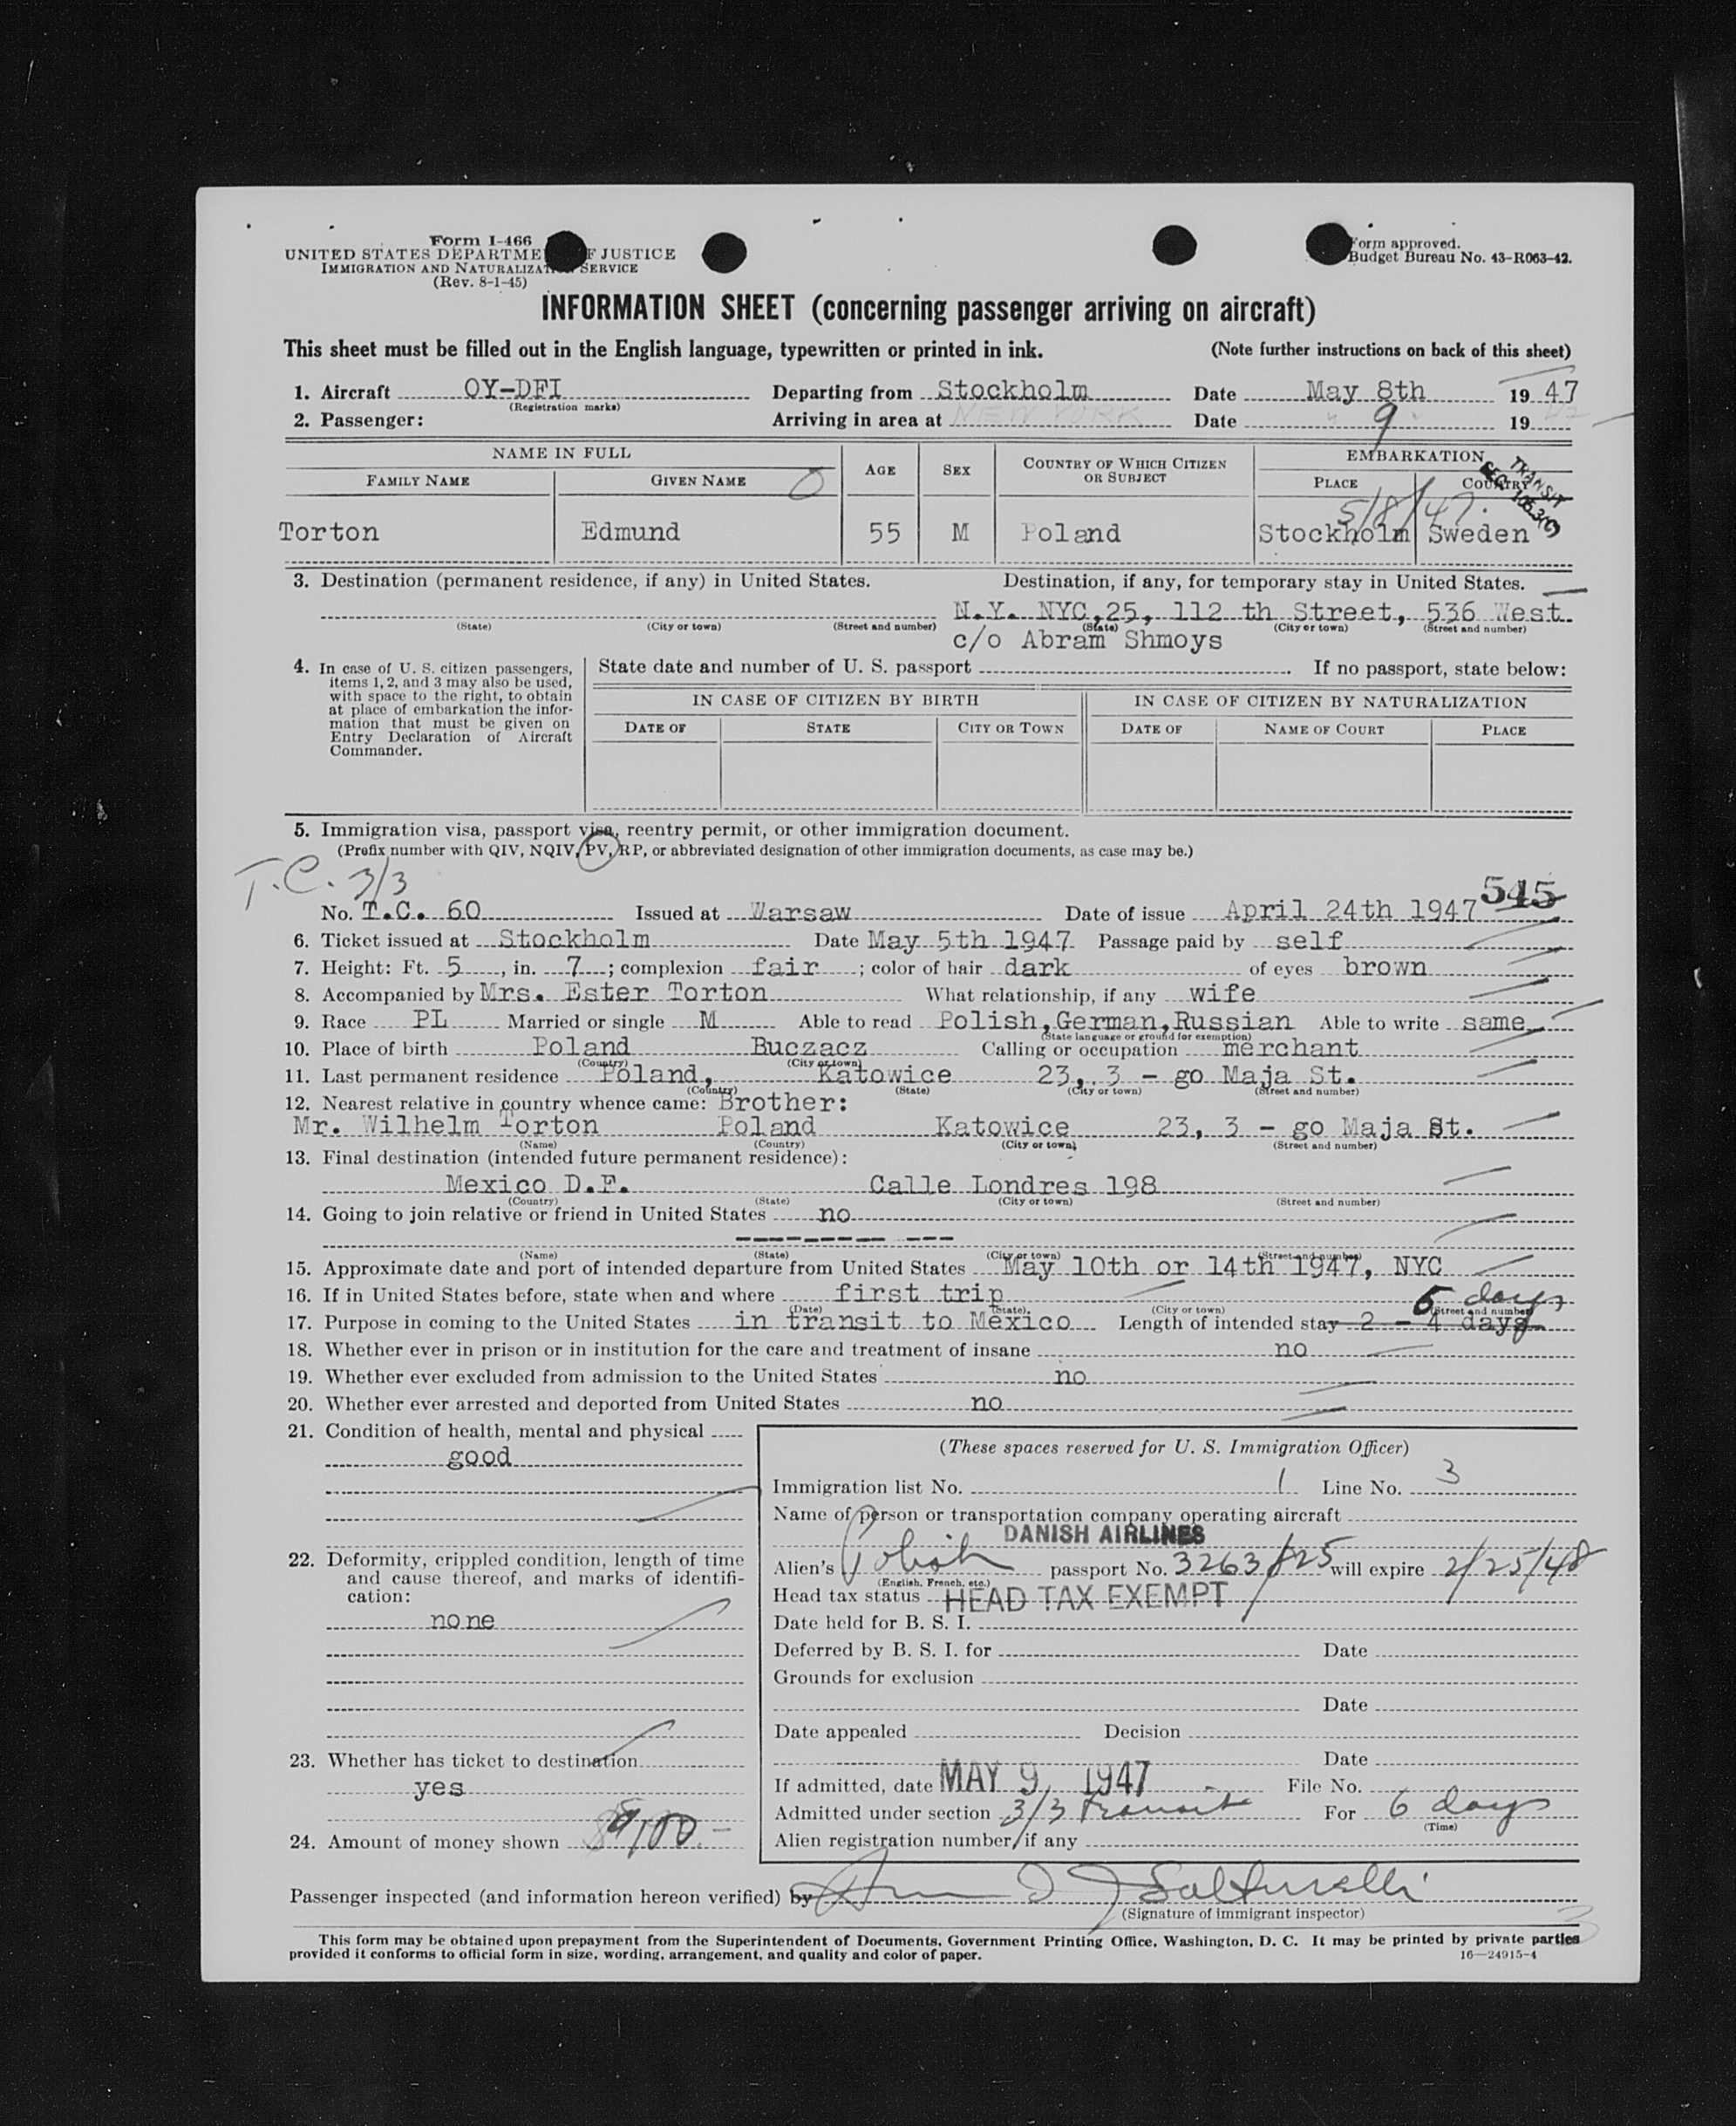 Form I-466
UNITED STATES DEPARTMENT OF JUSTICE
IMMIGRATION AND NATURALIZATION SERVICE
(Rev. 8-1-45)
Form approved.
Budget Bureau No. 43-R063-42.
INFORMATION SHEET (concerning passenger arriving on aircraft)
This sheet must be filled out in the English language, typewritten or printed in ink. (Note further instructions on back of this sheet)
1. Aircraft OY-DFI Departing from Stockholm Date May 8th 1947
(Registration marks)
2. Passenger: Arriving in area at NEW YORK Date 9 19 47
NAME IN FULL AGE SEX COUNTRY OF WHICH CITIZEN OR SUBJECT EMBARKATION
FAMILY NAME GIVEN NAME PLACE COUNTRY
TRANSIT
SEC. 105.3(C)
5/8/47.
Torton Edmund 55 M Poland Stockholm Sweden
3. Destination (permanent residence, if any) in United States. Destination, if any, for temporary stay in United States.
N.Y. NYC,25, 112 th Street, 536 West
(State) (City or town) (Street and number) (State) (City or town) (Street and number)
c/o Abram Shmoys
4. In case of U. S. citizen passengers, items 1, 2, and 3 may also be used, with space to the right, to obtain at place of embarkation the information that must be given on Entry Declaration of Aircraft Commander.
State date and number of U. S. passport . If no passport, state below:
IN CASE OF CITIZEN BY BIRTH IN CASE OF CITIZEN BY NATURALIZATION
DATE OF STATE CITY OR TOWN DATE OF NAME OF COURT PLACE
5. Immigration visa, passport visa, reentry permit, or other immigration document.
(Prefix number with QIV, NQIV, PV, RP, or abbreviated designation of other immigration documents, as case may be.)
T.C. 3/3
545
No. T.C. 60 Issued at Warsaw Date of issue April 24th 1947
6. Ticket issued at Stockholm Date May 5th 1947 Passage paid by self
7. Height: Ft. 5, in. 7; complexion fair; color of hair dark of eyes brown
8. Accompanied by Mrs. Ester Torton What relationship, if any wife
9. Race PL Married or single M Able to read Polish,German,Russian Able to write same
(State language or ground for exemption)
10. Place of birth Poland Buczacz Calling or occupation merchant
(Country) (City or town)
11. Last permanent residence Poland, Katowice 23, 3 - go Maja St.
(Country) (State) (City or town) (Street and number)
12. Nearest relative in country whence came: Brother:
Mr. Wilhelm Torton Poland Katowice 23, 3 - go Maja St.
(Name) (Country) (City or town) (Street and number)
13. Final destination (intended future permanent residence):
Mexico D.F. Calle Londres 198
(Country) (State) (City or town) (Street and number)
14. Going to join relative or friend in United States no
--------- ---
(Name) (State) (City or town) (Street and number)
15. Approximate date and port of intended departure from United States May 10th or 14th 1947, NYC
16. If in United States before, state when and where first trip
(Date) (State) (City or town) (Street and number)
6 days
17. Purpose in coming to the United States in transit to Mexico Length of intended stay 2 - 4 days
18. Whether ever in prison or in institution for the care and treatment of insane no
19. Whether ever excluded from admission to the United States no
20. Whether ever arrested and deported from United States no
21. Condition of health, mental and physical
good
22. Deformity, crippled condition, length of time and cause thereof, and marks of identification:
none
23. Whether has ticket to destination
yes
24. Amount of money shown
(These spaces reserved for U. S. Immigration Officer)
Immigration list No. 1 Line No. 3
Name of person or transportation company operating aircraft
DANISH AIRLINES
Alien's Polish passport No. 3263/825 will expire 2/25/48
(English, French, etc.)
Head tax status HEAD TAX EXEMPT
Date held for B. S. I.
Deferred by B. S. I. for Date
Grounds for exclusion
Date
Date appealed Decision
Date
If admitted, date MAY 9 1947 File No.
Admitted under section 3/3 Transit For 6 days
(Time)
Alien registration number, if any
Passenger inspected (and information hereon verified) by
(Signature of immigrant inspector)
3
This form may be obtained upon prepayment from the Superintendent of Documents, Government Printing Office, Washington, D. C. It may be printed by private parties
provided it conforms to official form in size, wording, arrangement, and quality and color of paper.
16—24915-4